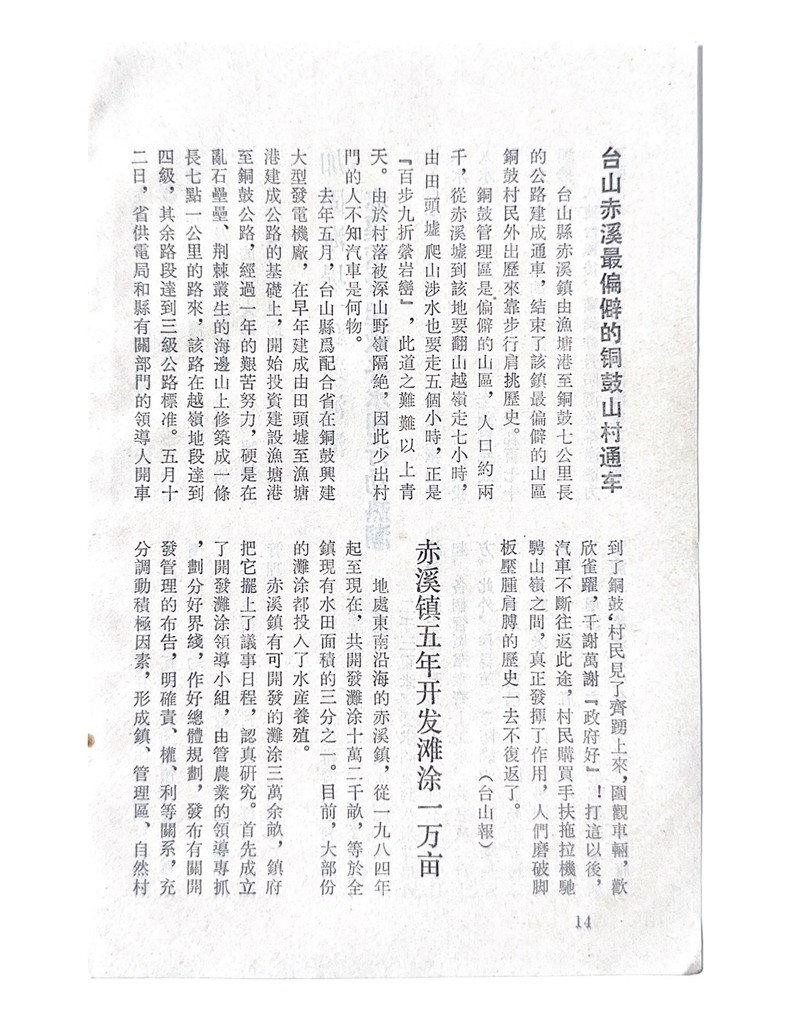 台山赤溪最偏僻的铜鼓山村通车
台山縣赤溪鎮由漁塘港至銅鼓七公里長
的公路建成通車，結束了該鎮最偏僻的山區
銅鼓村民外出歷來靠步行肩挑歷史。
銅鼓管理區是偏僻的山區，人口約兩
千，從赤溪墟到該地要翻山越嶺走七小時，
由田頭墟爬山涉水也要走五個小時，正是
『百步九折縈岩巒』，此道之難難以上青
天。由於村落被深山野嶺隔絶，因此少出村
門的人不知汽車是何物。
去年五月，台山縣爲配合省在銅鼓興建
大型發電機廠，在早年建成由田頭墟至漁塘
港建成公路的基礎上，開始投資建設漁塘港
至銅鼓公路，經過一年的艱苦努力，硬是在
亂石壘壘、荆棘叢生的海邊山上修築成一條
長七點一公里的路來，該路在越嶺地段達到
四級，其余路段達到三級公路標准。五月十
二日，省供電局和縣有關部門的領導人開車
到了銅鼓，村民見了齊踴上來，圍觀車輛，歡
欣雀躍，千謝萬謝『政府好』！打這以後，
汽車不斷往返此途，村民購買手扶拖拉機馳
騁山嶺之間，真正發揮了作用，人們磨破脚
板壓腫肩膊的歷史一去不復返了。
（台山報）
赤溪镇五年开发滩涂一万亩
地處東南沿海的赤溪鎮，從一九八四年
起至現在，共開發灘涂十萬二千畝，等於全
鎮現有水田面積的三分之一。目前，大部份
的灘涂都投入了水産養殖。
赤溪鎮有可開發的灘涂三萬余畝，鎮府
把它擺上了議事日程，認真研究。首先成立
了開發灘涂領導小組，由管農業的領導專抓
，劃分好界綫，作好總體規劃，發布有關開
發管理的布告，明確責、權、利等關系，充
分調動積極因素，形成鎮、管理區、自然村
14